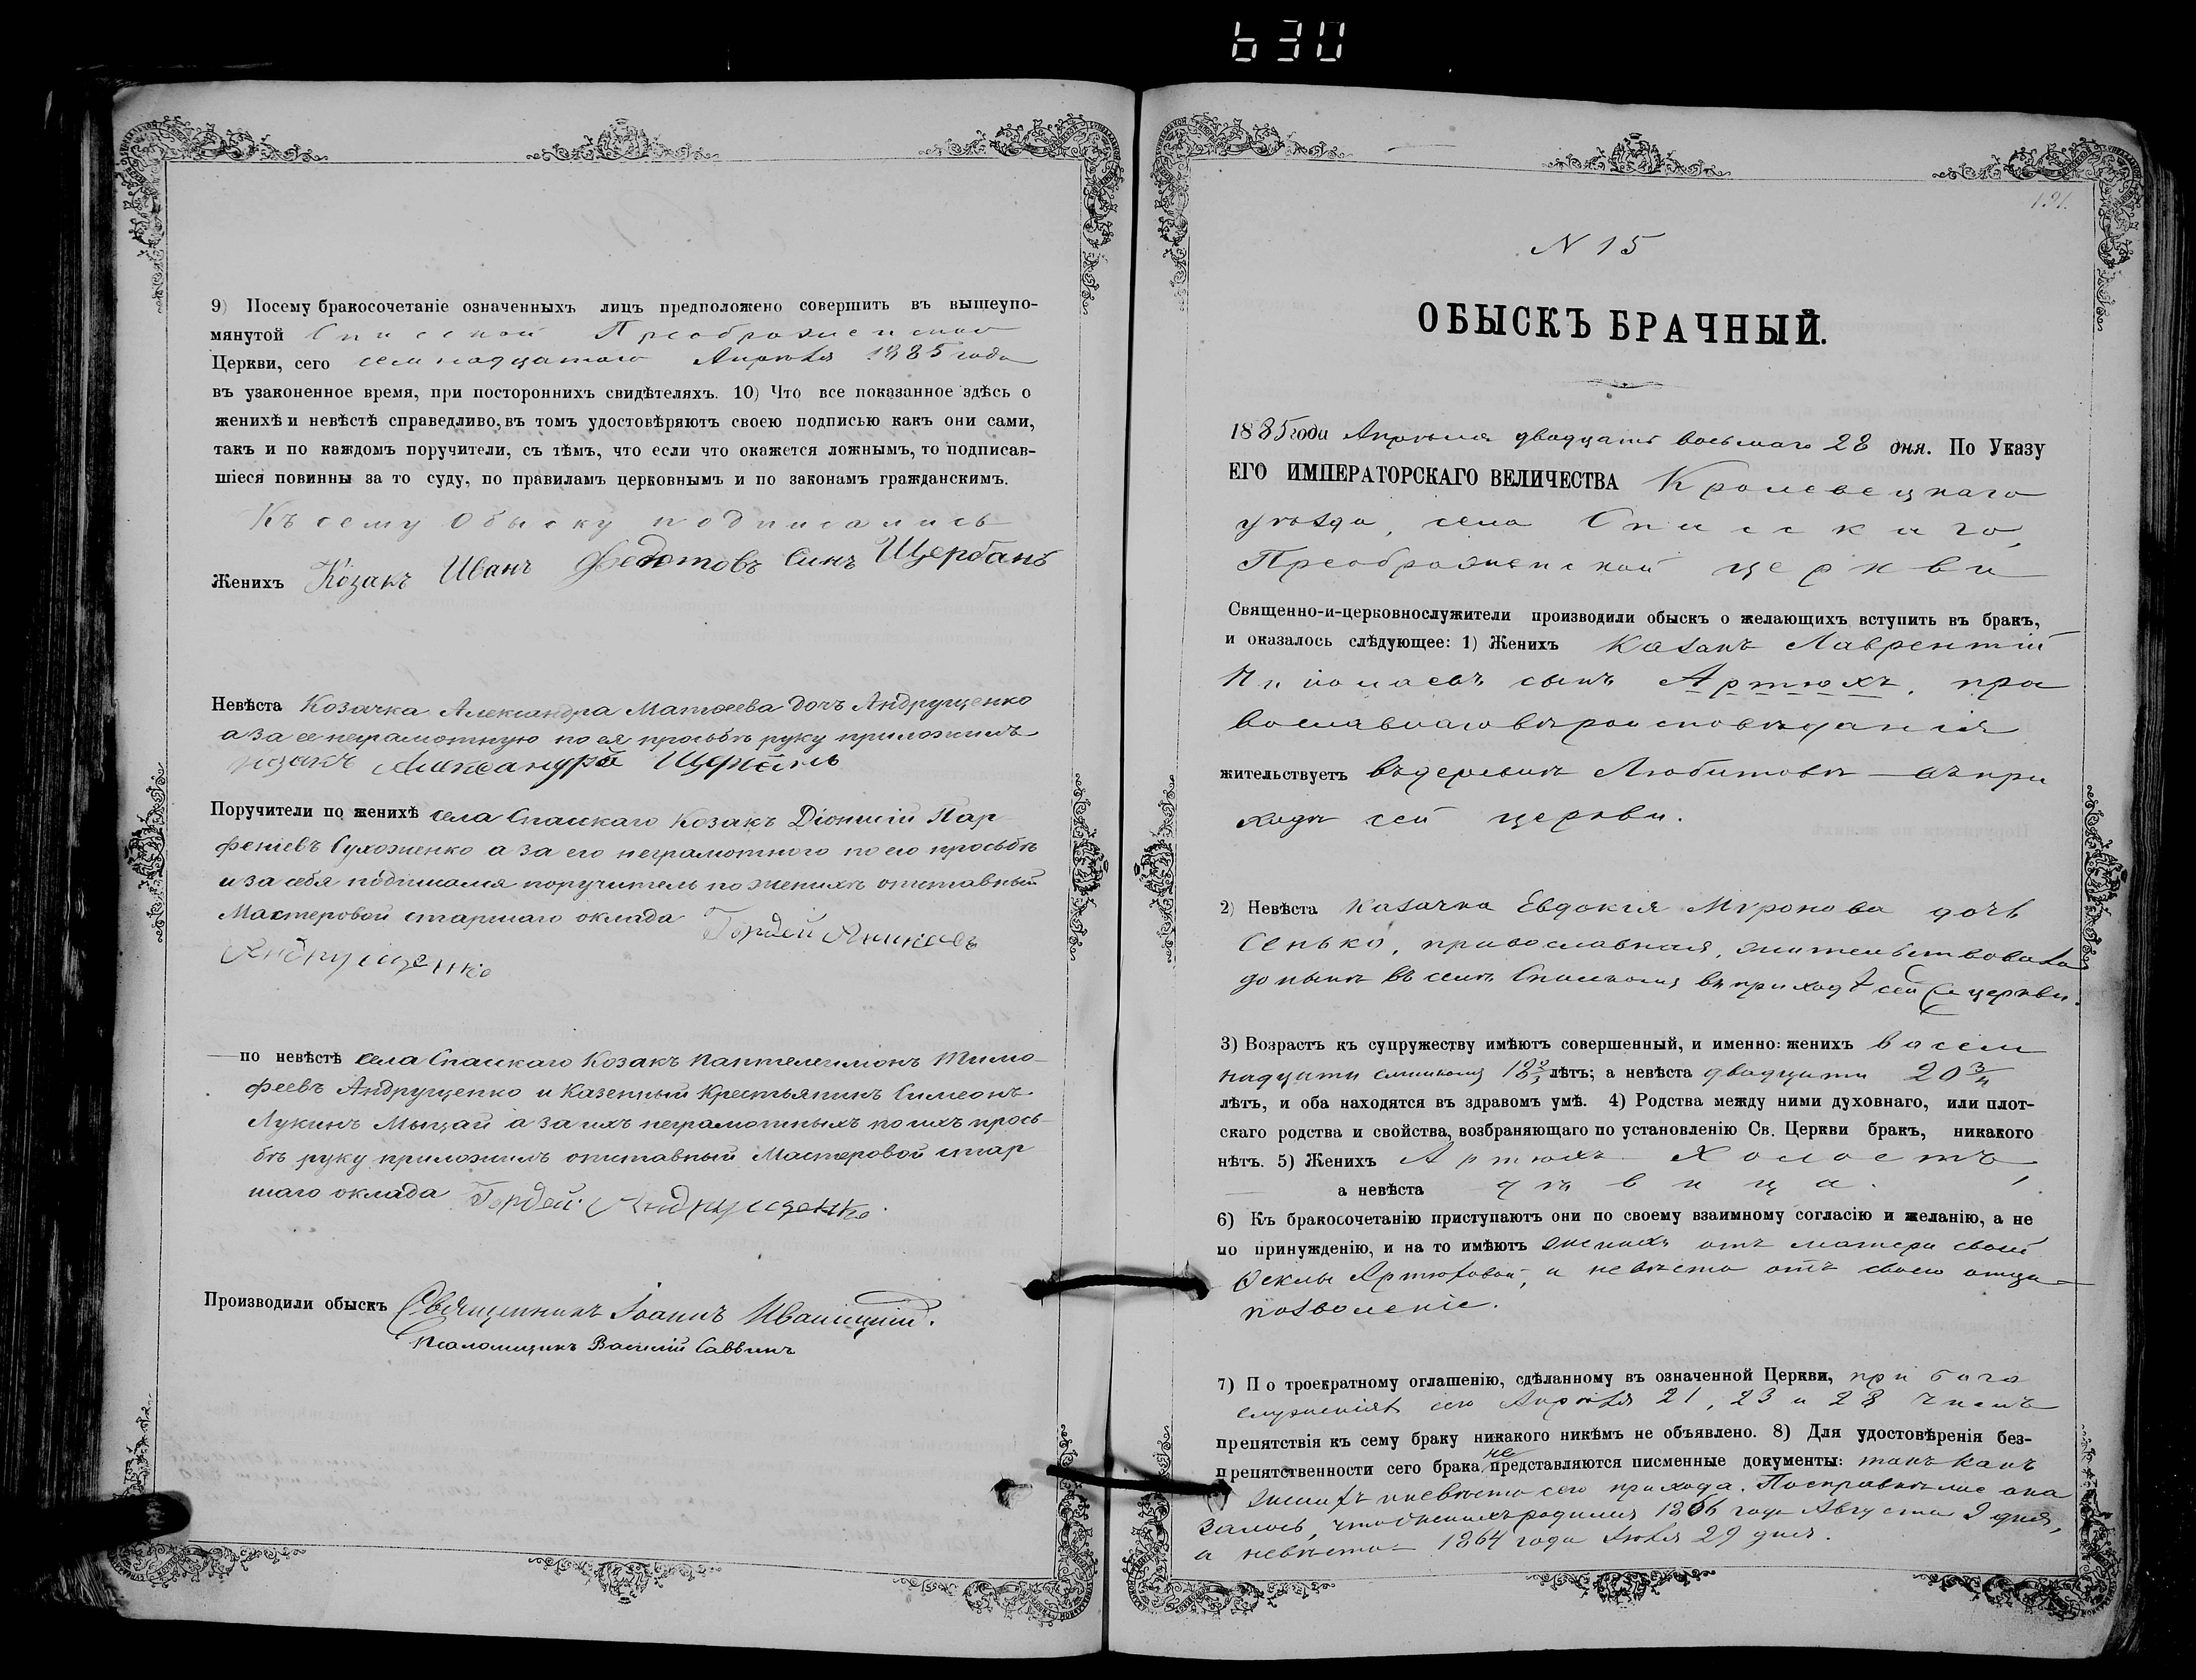 630
9) Посему бракосочетаніе означенныхъ лицъ предположено совершить въ вышеупо-
мянутой Спасской Преображенской
Церкви, сего семнадцатаго Апрѣля 1885 года
въ узаконенное время, при постороннихъ свидѣтеляхъ. 10) Что все показанное здѣсь о
женихѣ и невѣстѣ справедливо, въ томъ удостовѣряютъ своею подписью какъ они сами,
такъ и по каждомъ поручители, съ тѣмъ, что если что окажется ложнымъ, то подписав-
шіеся повинны за то суду, по правиламъ церковнымъ и по законамъ гражданскимъ.
Къ сему Обыску подписались
Женихъ Козакъ Иванъ Федотовъ Синъ Щербань
Невѣста Козачка Александра Матѳеева дочъ Андрущенко
а за ее неграмотную по ея просьбѣ руку приложилъ
козакъ Щербань
Поручители по женихѣ села Спасскаго Козакъ Діонисій Пар-
феніевъ Сухоженко а за его неграмотного по его просьбѣ
и за себя подписался поручитель по женихѣ отставный
Мастеровой старшаго оклада Гордей Аникеевъ
Андрущенко
по невѣстѣ села Спасскаго Козакъ Пантелеимонъ Тимо-
феевъ Андрущенко и Казенный Крестьянинъ Симеонъ
Лукинъ Мыцай а за ихъ неграмотныхъ по ихъ прось-
бѣ руку приложилъ отставный Мастеровой стар
шаго оклада Гордей Андрущенко.
Производили обыскъ Священникъ Іоаннъ
Псаломщикъ Василій Саввинъ
191.
N 15
ОБЫСКЪ БРАЧНЫЙ.
1885 года Апрѣля двадцать восьмаго 28 дня. По Указу
ЕГО ИМПЕРАТОРСКАГО ВЕЛИЧЕСТВА Кролевецкаго
уѣзда, села Спасскаго,
Преображенской церкви
Священно-и-церковнослужители производили обыскъ о желающихъ вступить въ бракъ,
и оказалось слѣдующее: 1) Женихъ Казакъ Лаврентій
Николаевъ сынъ Артюхъ, пра
вославнаго вѣроисповѣданія
жительствуетъ въ деревнѣ Любитовѣ – въ при
ходѣ сей церкви.
2) Невѣста Казачка Евдокія Мѵронова дочь
Сенько, православная, жительствовала
до нынѣ въ селѣ Спасскомъ въ приходѣ сей церкви.
3) Возрастъ къ супружеству имѣютъ совершенный, и именно: женихъ восем
надцати слишкомъ 18 2/3 лѣтъ; а невѣста двадцати 20 3/4
лѣтъ, и оба находятся въ здравомъ умѣ. 4) Родства между ними духовнаго, или плот-
скаго родства и свойства, возбраняющаго по установленію Св. Церкви бракъ, никакого
нѣтъ. 5) Женихъ Артюхъ Холостъ,
а невѣста дѣвица.
6) Къ бракосочетанію приступаютъ они по своему взаимному согласію и желанію, а не
по принужденію, и на то имѣютъ женихъ отъ матери своей
Ѳеклы Артюховой, и невѣста отъ своего отца –
позволеніе.
7) По троекратному оглашенію, сдѣланному въ означенной Церкви, при бого
служеніяхъ сего Апрѣля 21, 23 и 28 числъ
препятствія къ сему браку никакого никѣмъ не объявлено. 8) Для удостовѣренія без-
препятственности сего брака не представляются писменные документы: такъ какъ
женихъ и невѣста сего прихода. По справкѣ ока
залось, что женихъ родился 1866 года Августа 9 дня,
а невѣста – 1864 года Іюля 29 дня.